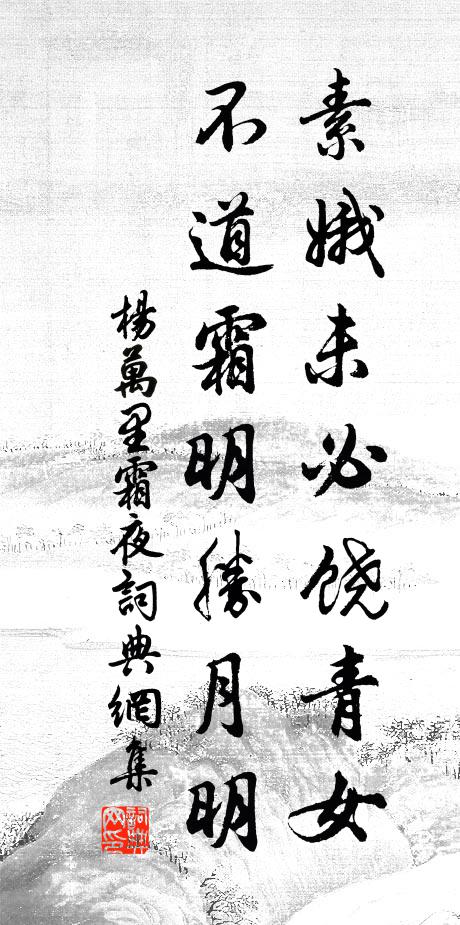 素娥未必饶青女
不道霜明勝月明
楊萬里霜夜詞典網集
詞典網印